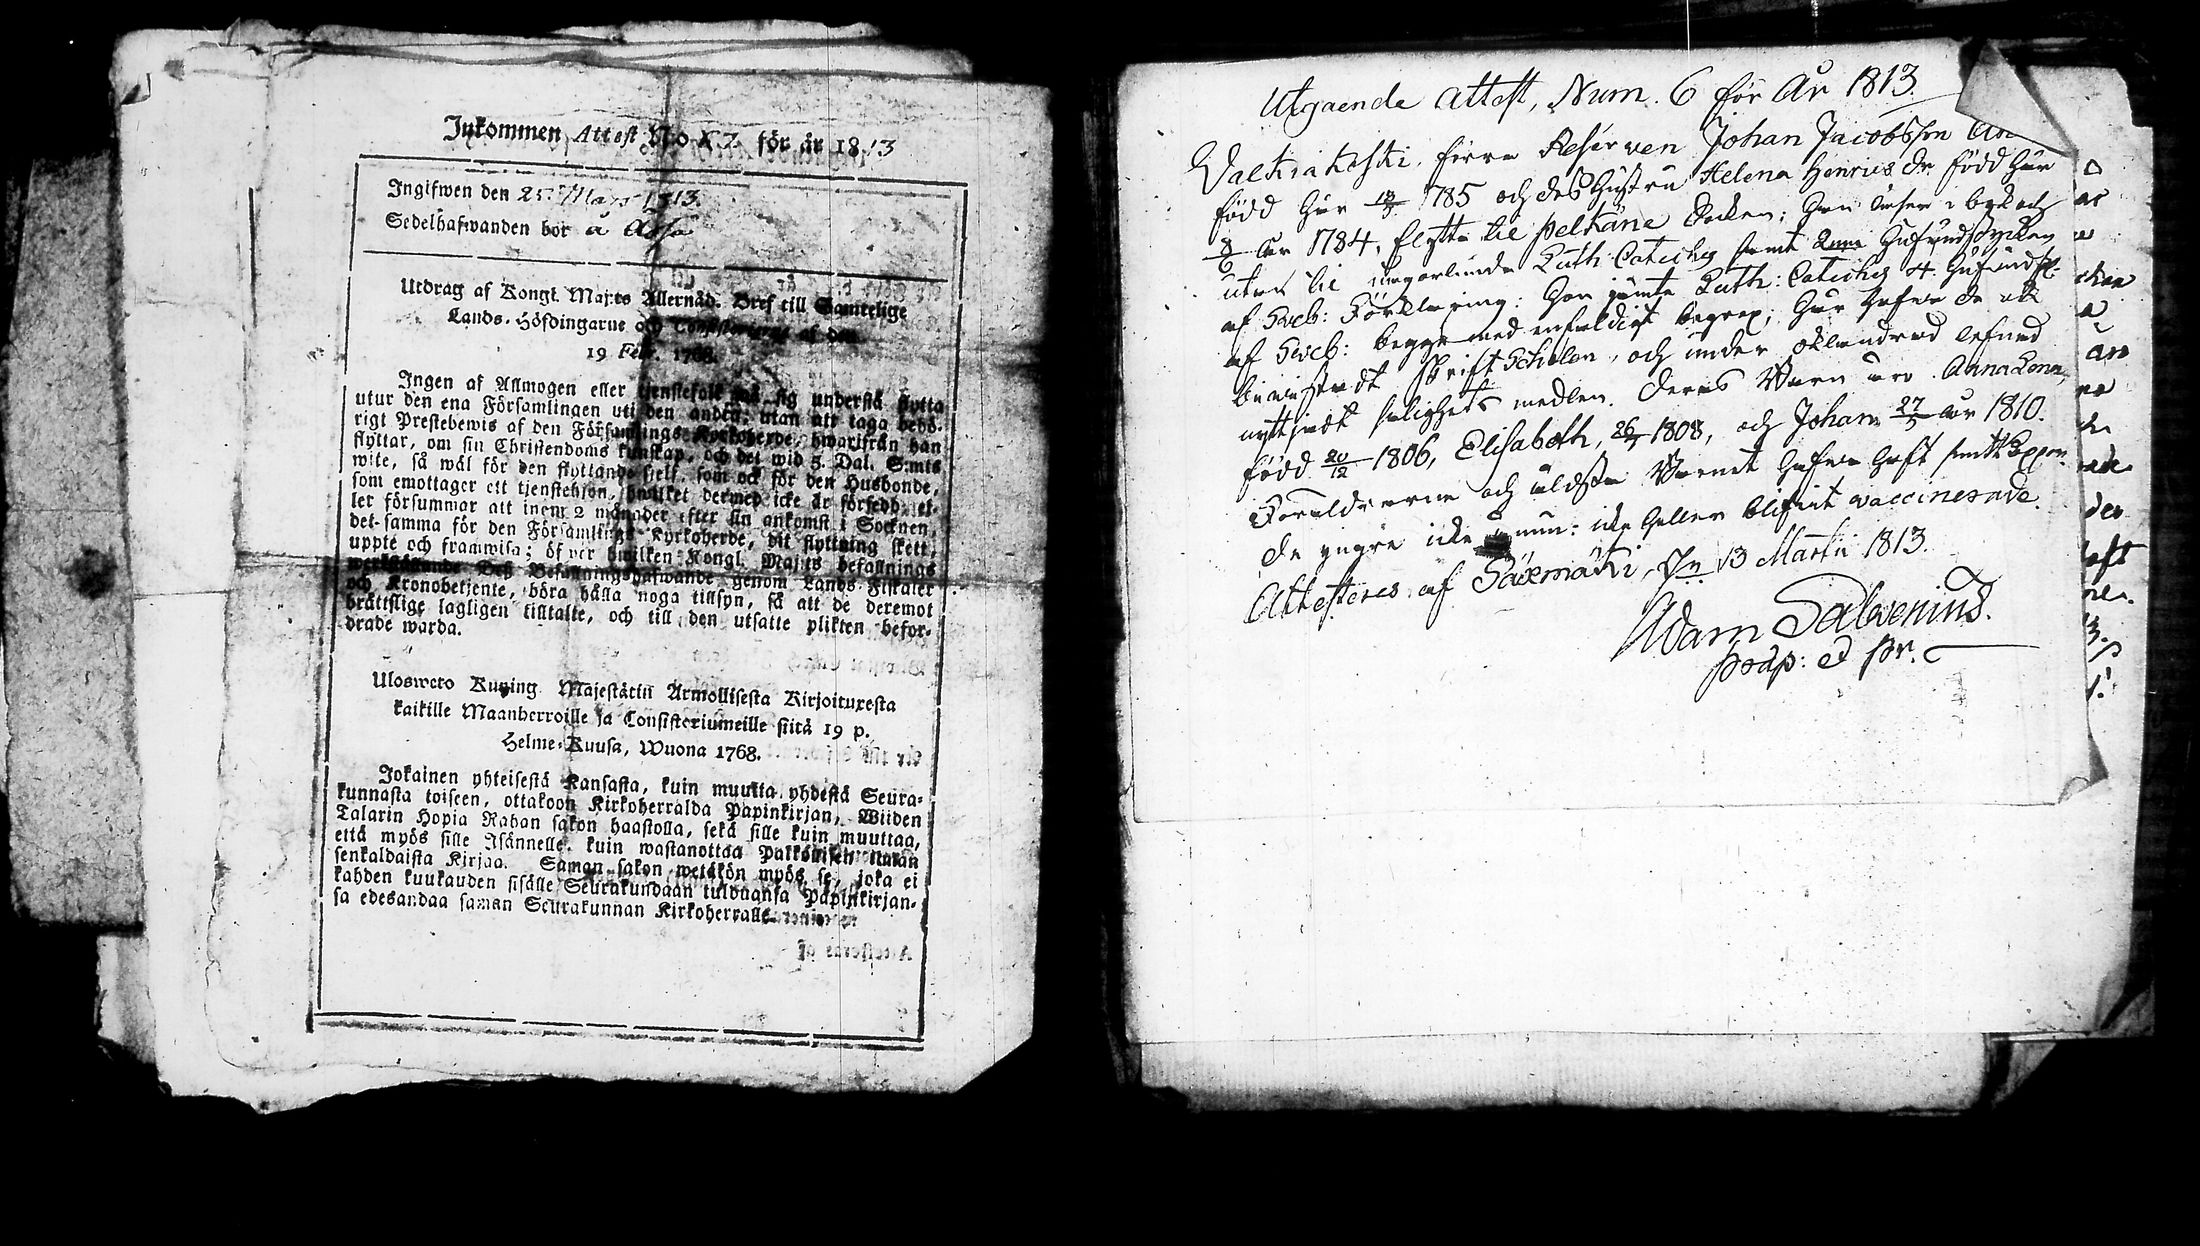 Inkommen Attest No XI. för år 1813
Ingifwen den 25 Mars 1813.
Sedelhafwanden bor å
Utdrag af Kongl. Maj:ts Allernåd. Bref till Samtelige
Lands-Höfdingarne och Consistorierne af den
19 Febr. 1768.
Ingen af Allmogen eller tjenstefolk må sig understå flytta
utur den ena Församlingen uti den andra; utan att taga behö-
rigt Prestebewis af den Församlings Kyrkoherde, hwarifrån han
flyttar, om sin Christendoms kunskap, och det wid 5. Dal. S:mts
wite, så wäl för den flyttande sjelf, som ock för den Husbonde,
som emottager ett tjenstehion, hwilket dermed icke är försedd; el-
ler försummar att inom 2 månader efter sin ankomst i Socknen,
det samma för den Församlings Kyrkoherde, dit flyttning skett,
uppte och framwisa; öfwer hwilken Kongl. Maj:ts befallnings
werkställande Deß Befallningshafwande genom Lands-Fiskaler
och Kronobetjente, böra hålla noga tillsyn, så att de deremot
brättslige lagligen tilltalte, och till den utsatte plikten befor-
drade warda.
Ulosweto Kuning. Majestätin Armollisesta Kirjoituxesta
kaikille Maanherroille ja Consistoriumeille siitä 19 p.
Helme-Kuusa, Wuona 1768.
Jokainen yhteisestä Kansasta, kuin muutta yhdestä Seura-
kunnasta toiseen, ottakoon Kirkoherralda Papinkirjan, Wiiden
Talarin Hopia Rahan sakon haastolla, sekä sille kuin muuttaa,
että myös sille Isännelle, kuin wastanottaa Palkollisen ilman
senkaldaista Kirjaa. Saman sakon wetäkön myös se, joka ei
kahden kuukauden sisälle Seurakundaan tulduansa Papinkirjan-
sa edesandaa saman Seurakunnan Kirkoherralle.
Utgaende Attest, Num. 6 för År 1813.
Valkiakoski. firre Reserven Johan Jacobsson
född Här 1785 och des Hustru Helena Henrics dr. född Här
8/9 år 1784, flytta til Pelkäne Socken; Han läser i bok och
utan til någorlunda Luth: Catiches samt Hufvudstycken
af Sveb: Förklaring: Hon jämte Luth: Catiches 4. Hufvudst:
af Sveb: begge med enfaldigt begrep; Här hafva de ock
bivistadt Skrift Scholan, och under oklandrad lefnad
nyttjadt salighets medlen. Deras Barn äro Anna Lena,
född 20/12 1806, Elisabeth, 1808, och Johan 27/5 år 1810.
Föräldrarne och äldsta Barnet hafva haft smitt Koppor.
de yngre icke ännu: icke heller blifvit vaccinerade.
Attesteras af Sääxmäki, Dn 13 Martii 1813.
Adam Salvenius.